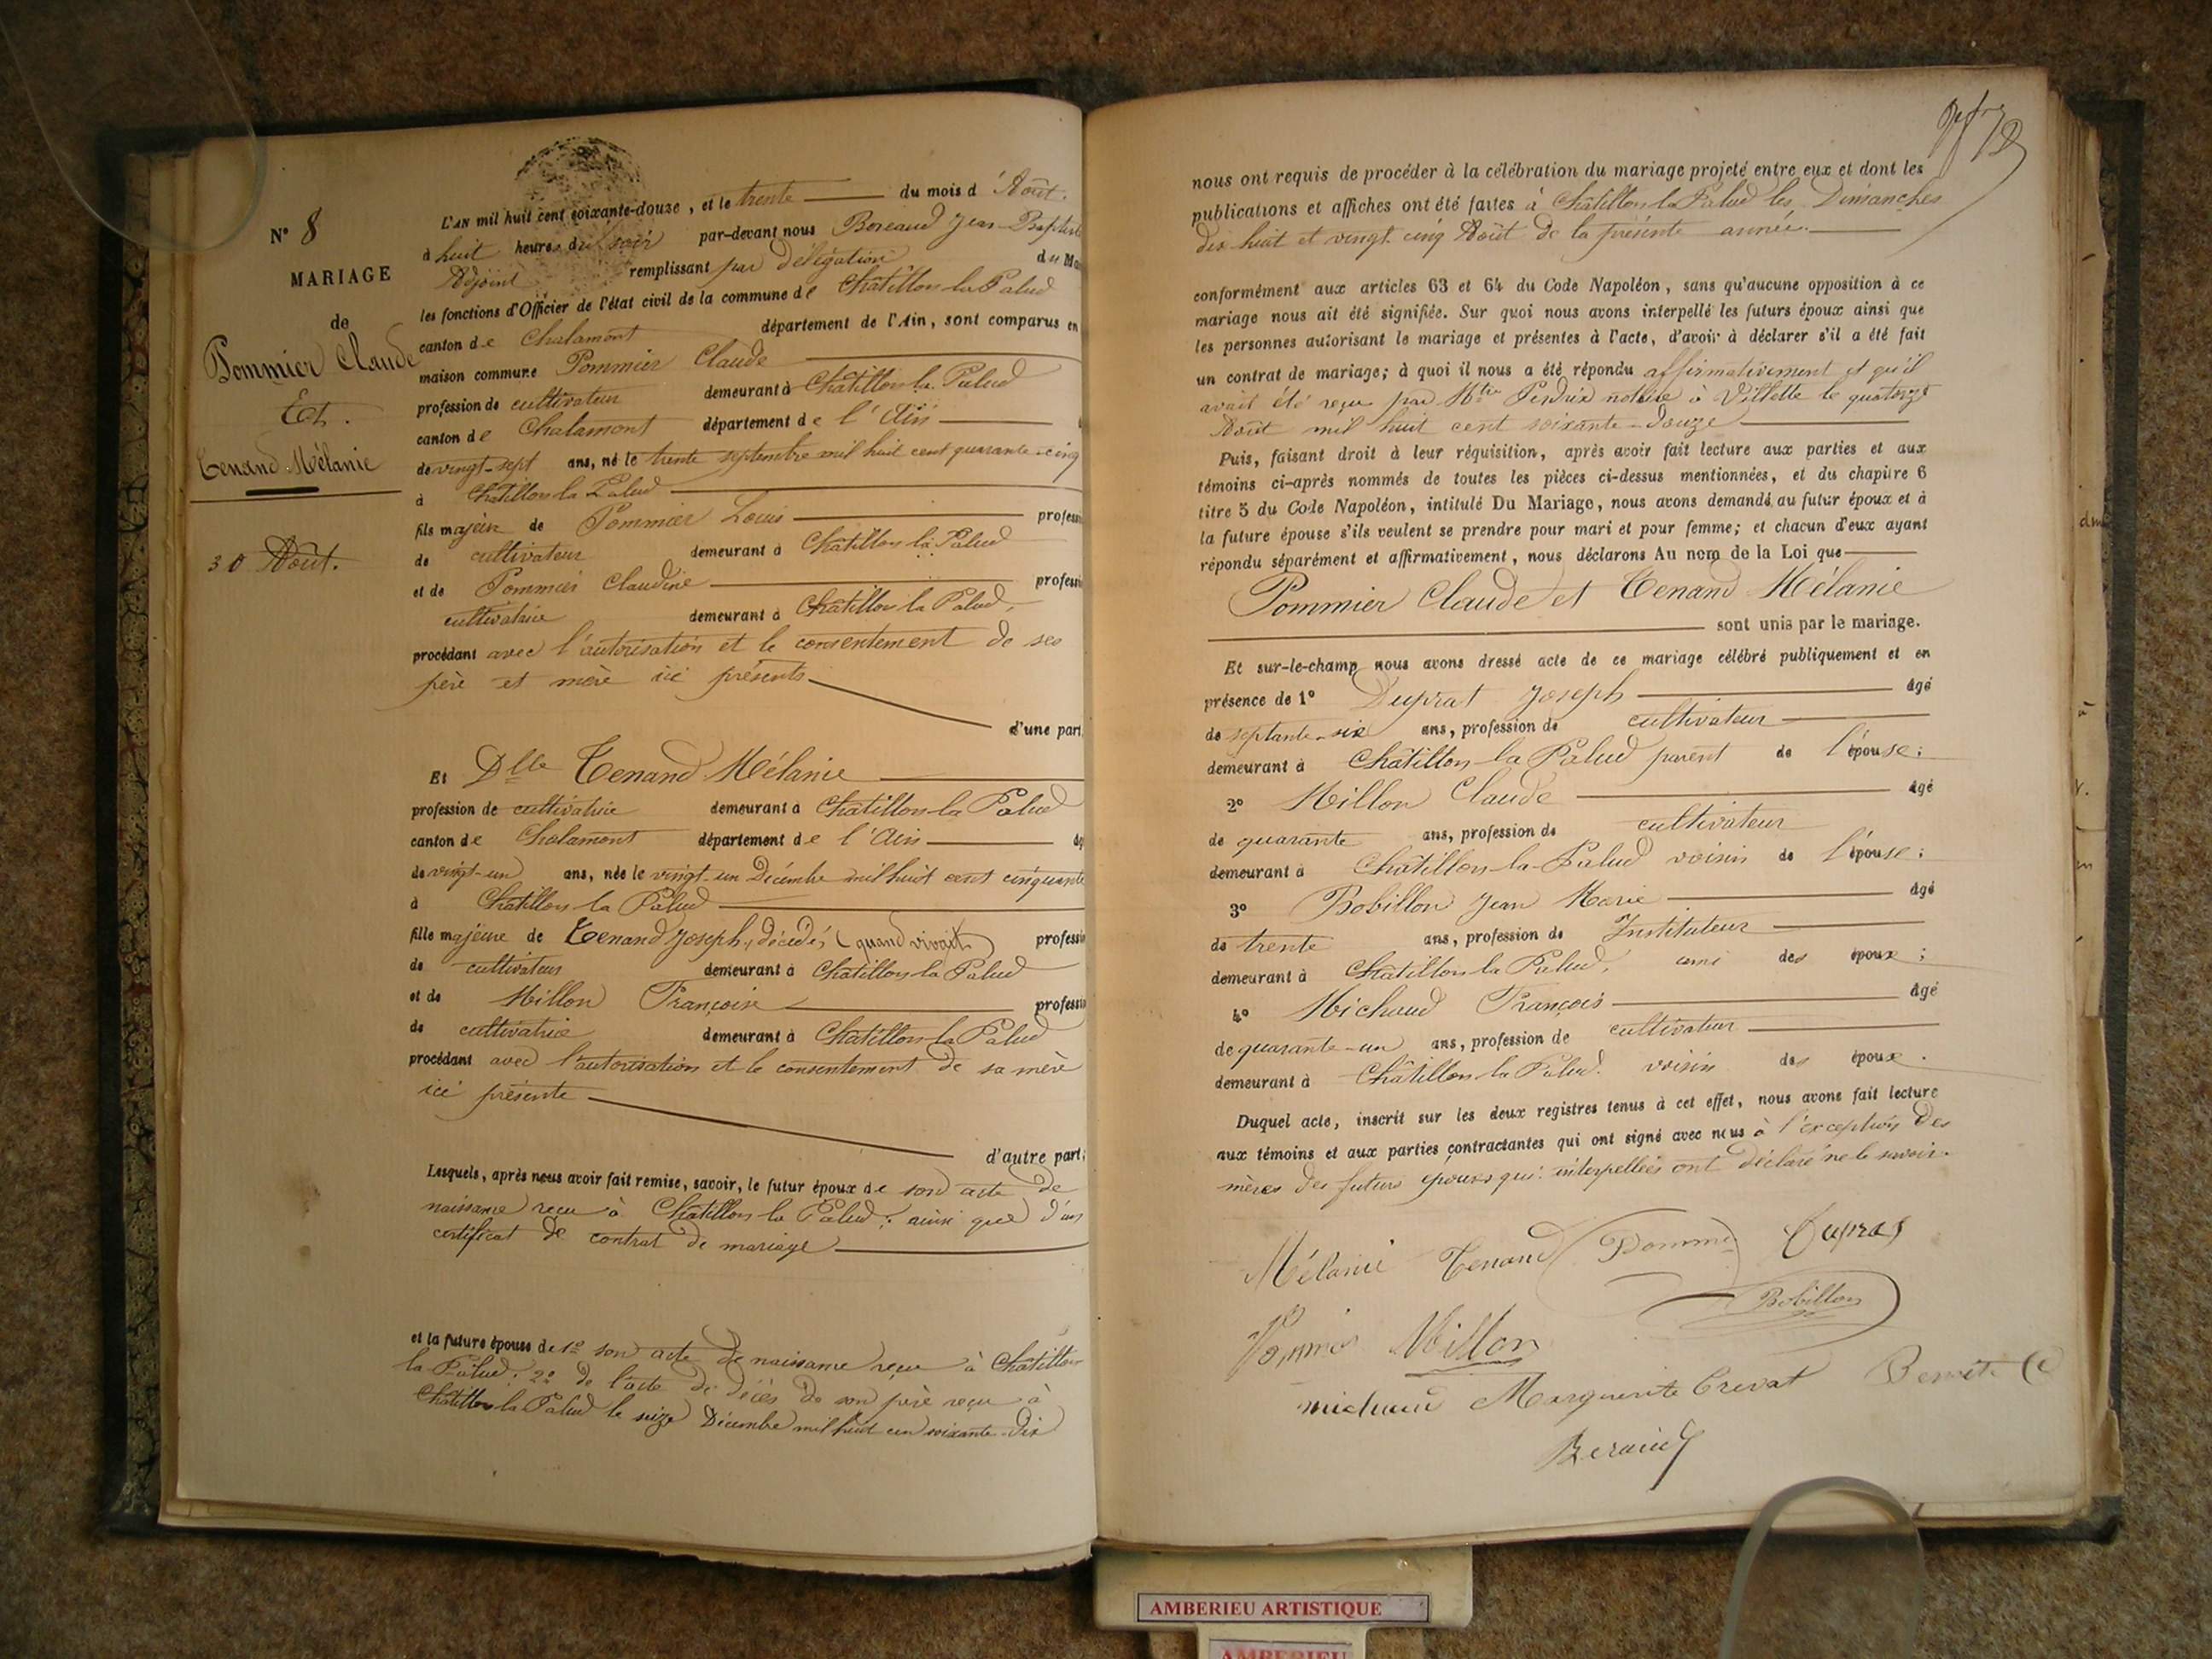 N° 8
MARIAGE
de
Pommier Claude
Et.
Tenand Mélanie
30 Août.
L'AN mil huit cent soixante-douze, et le trente du mois d'Août.
à huit heures du soir par-devant nous Jean-Baptiste
Adjoint remplissant par délégation du
les fonctions d'Officier de l'état civil de la commune de Châtillon la Palud
canton de Chalamont département de l'Ain, sont comparus en
maison commune Pommier Claude
profession de cultivateur demeurant à Châtillon la Palud
canton de Chalamont département de l'Ain
de vingt-sept ans, né le trente septembre mil huit cent quarante-cinq
à Châtillon la Palud
fils majeur de Pommier Louis
de cultivateur demeurant à Châtillon la Palud
et de Pommier Claudine
cultivatrice demeurant à Châtillon la Palud,
procédant avec l'autorisation et le consentement de ses
père et mère ici présents
d'une part,
Et Dlle Tenand Mélanie
profession de cultivatrice demeurant à Châtillon-la Palud
canton de Chalamont département de l'Ain
de vingt-un ans, née le vingt-un Décembre mil huit cent cinquante
à Châtillon la Palud
fille majeure de Tenand Joseph, décédé, (quand vivait)
de cultivateur demeurant à Châtillon la Palud
et de Millon Françoise
de cultivatrice demeurant à Châtillon la Palud
procédant avec l'autorisation et le consentement de sa mère
ici présente
d'autre part;
Lesquels, après nous avoir fait remise, savoir, le futur époux de son acte de
naissance reçu à Châtillon la Palud; ainsi que d'un
certificat de contrat de mariage
et la future épouse de 1° son acte de naissance reçu à Châtillon
la Palud; 2° de l'acte de décès de son père reçu à
Châtillon la Palud le seize Décembre mil huit cen soixante-dix
nous ont requis de procéder à la célébration du mariage projeté entre eux et dont les
publications et affiches ont été faites à Châtillon la Palud les Dimanches
dix huit et vingt-cinq Août de la présente année.
conformément aux articles 63 et 64 du Code Napoléon, sans qu'aucune opposition à ce
mariage nous ait été signifiée. Sur quoi nous avons interpellé les futurs époux ainsi que
les personnes autorisant le mariage et présentes à l'acte, d'avoir à déclarer s'il a été fait
un contrat de mariage; à quoi il nous a été répondu affirmativement et qu'il
avait été reçu par Mtre Perdrix notaire à Villette le quatorze
Août mil huit cent soixante-douze
Puis, faisant droit à leur réquisition, après avoir fait lecture aux parties et aux
témoins ci-après nommés de toutes les pièces ci-dessus mentionnées, et du chapitre 6
titre 5 du Code Napoléon, intitulé Du Mariage, nous avons demandé au futur époux et à
la future épouse s'ils veulent se prendre pour mari et pour femme; et chacun d'eux ayant
répondu séparément et affirmativement, nous déclarons Au nom de la Loi que
Pommier Claude et Tenand Mélanie
sont unis par le mariage.
Et sur-le-champ nous avons dressé acte de ce mariage célébré publiquement et en
présence de 1° Duprat Joseph âgé
de septante-six ans, profession de cultivateur
demeurant à Châtillon-la Palud parent de l'épouse;
2° Millon Claude âgé
de quarante ans, profession de cultivateur
demeurant à Châtillon-la-Palud voisin de l'épouse;
3° Bobillon Jean Marie âgé
de trente ans, profession de Instituteur
demeurant à Châtillon la Palud, ami des époux;
4° Michaud François âgé
de quarante-un ans, profession de cultivateur
demeurant à Châtillon la Palud. voisin des époux.
Duquel acte, inscrit sur les deux registres tenus à cet effet, nous avons fait lecture
aux témoins et aux parties contractantes qui ont signé avec nous à l'exception des
mères des futurs époux qui interpellées ont déclaré ne le savoir.
Mélanie Tenand Pommier Duprat
Bobillon
Pommier Millon
michaud Marguerite Crevat
AMBERIEU ARTISTIQUE
AMBERIEU